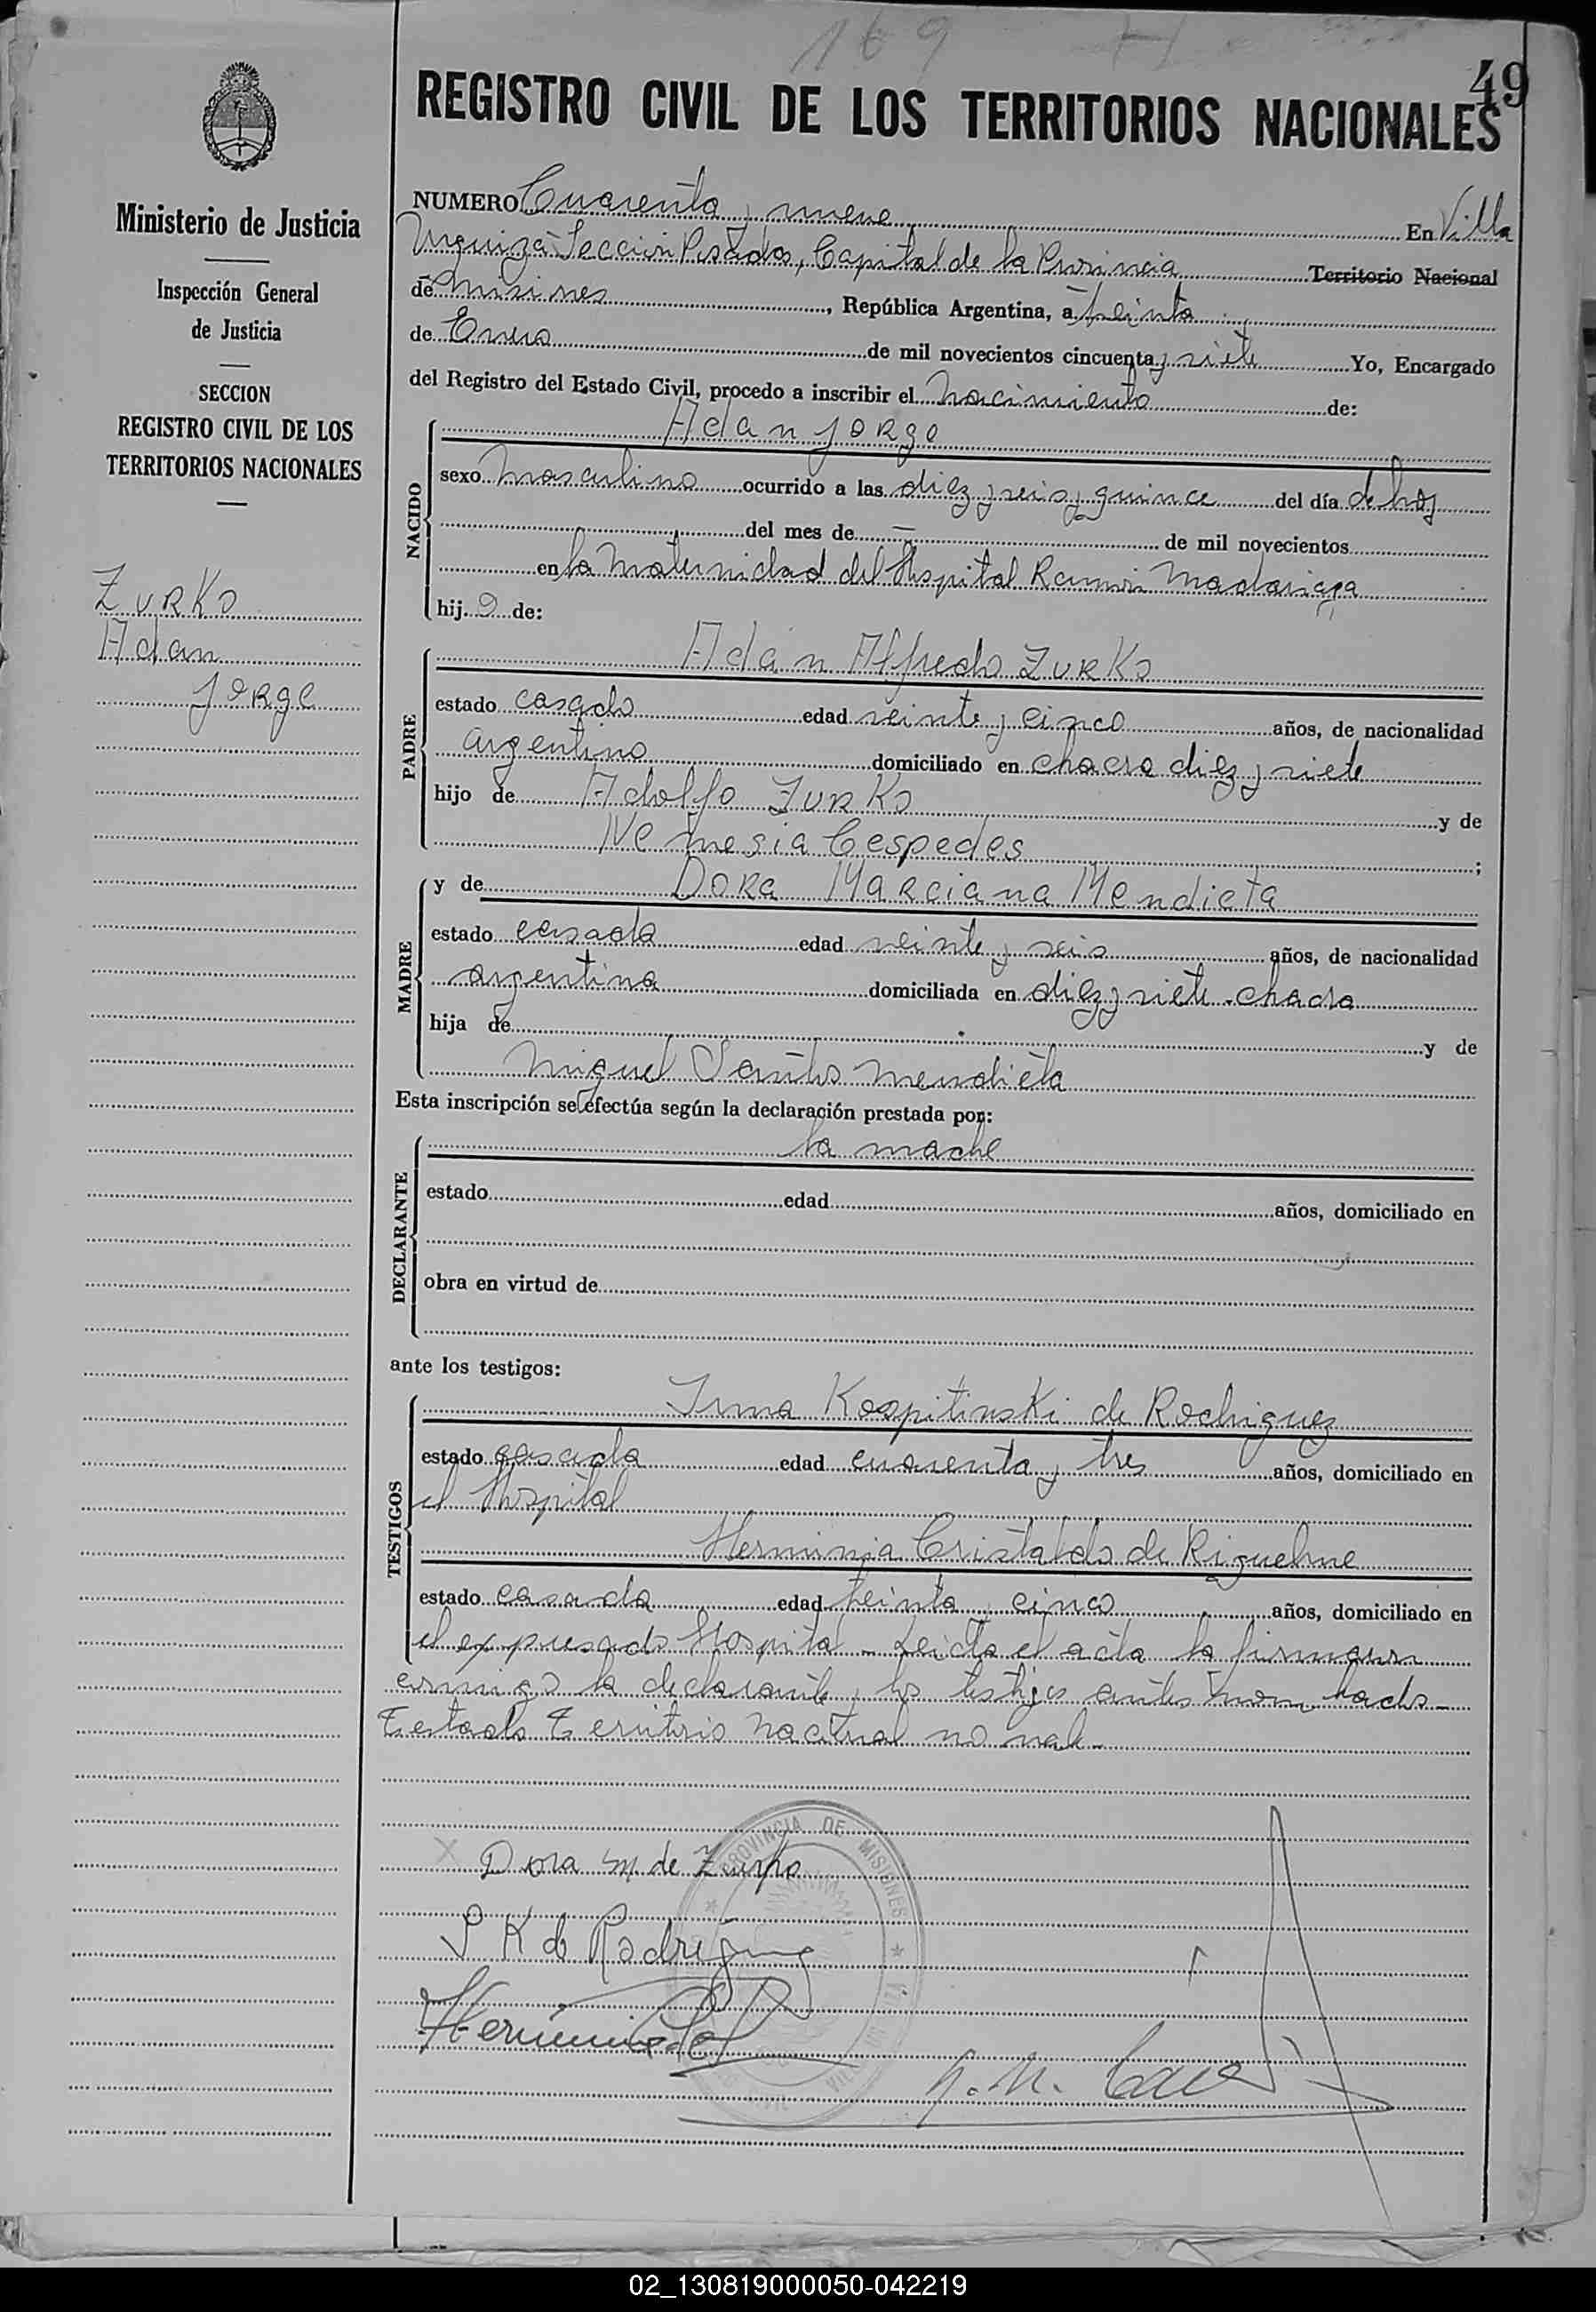 169
49
REGISTRO CIVIL DE LOS TERRITORIOS NACIONALES
Ministerio de Justicia
Inspección General
de Justicia
SECCION
REGISTRO CIVIL DE LOS
TERRITORIOS NACIONALES
Zurko
Adan
Jorge
NUMERO Cuarenta y nueve En Villa
Urquiza Sección Posadas, Capital de la Provincia Territorio Nacional
de Misiones, República Argentina, a treinta
de Enero de mil novecientos cincuenta y siete Yo, Encargado
del Registro del Estado Civil, procedo a inscribir el nacimiento de:
NACIDO
Adan Jorge
sexo masculino ocurrido a las diez y seis y quince del día de hoy
del mes de — de mil novecientos
en la Maternidad del Hospital Ramón Madariaga
hij o de:
PADRE
Adán Alfredo Zurko
estado casado edad veinte y cinco años, de nacionalidad
argentino domiciliado en chacra diez y siete
hijo de Adolfo Zurko y de
Nemesia Cespedes ;
MADRE
y de Dora Marciana Mendieta
estado casada edad veinte y seis años, de nacionalidad
argentina domiciliada en diez y siete - chacra
hija de y de
Miguel Santos Mendieta
Esta inscripción se efectúa según la declaración prestada por:
DECLARANTE
la madre
estado edad años, domiciliado en
obra en virtud de
ante los testigos:
TESTIGOS
Irma Kospitinski de Rodriguez
estado casada edad cuarenta y tres años, domiciliado en
el Hospital
Herminia Cristaldo de Riquelme
estado casada edad treinta y cinco años, domiciliado en
el expresado Hospital - Leida el acta la firmaron
conmigo la declarante y los testigos antes nombrados -
Testado Territorio Nacional no vale -
PROVINCIA DE MISIONES
X Dora M. de Zurko
K de Rodriguez
Herminia de
02_130819000050-042219